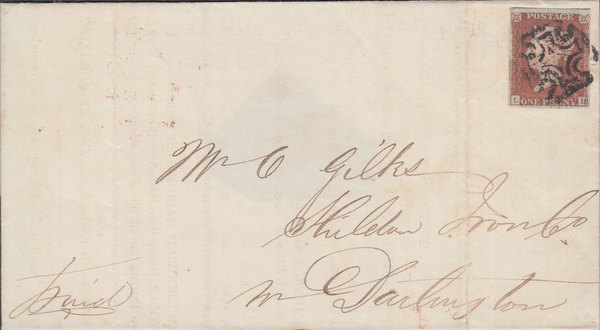 POSTAGE
ONE PENNY
Mr C Gilks
Shildon Iron Co
nr Darlington
Paid